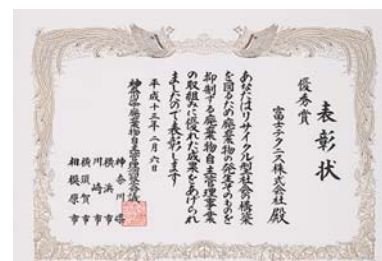 表彰状
優秀賞
富士テクニス株式会社殿
あなたはリサイクル型社会の構築
を図るため廃棄物の発生そのものを
抑制する廃棄物自主管理事業
の取組みに優れた成果をあげられ
ましたので表彰します
平成十三年二月六日
神奈川県
横浜市
川崎市
横須賀市
相模原市